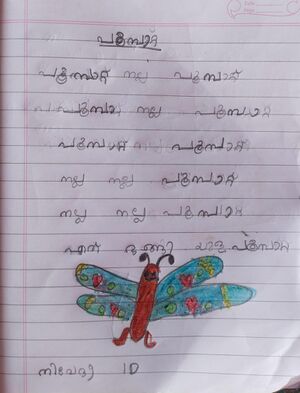 പൂമ്പാറ്റ
പൂമ്പാറ്റ നല്ല പൂമ്പാറ്റ
പൂമ്പാറ്റ നല്ല പൂമ്പാറ്റ
പൂമ്പാറ്റ നല്ല പൂമ്പാറ്റ
നല്ല നല്ല പൂമ്പാറ്റ
നല്ല നല്ല പൂമ്പാറ്റ
എന്ത് ഭംഗി പൂമ്പാറ്റ
നിവേദ്യ 1D